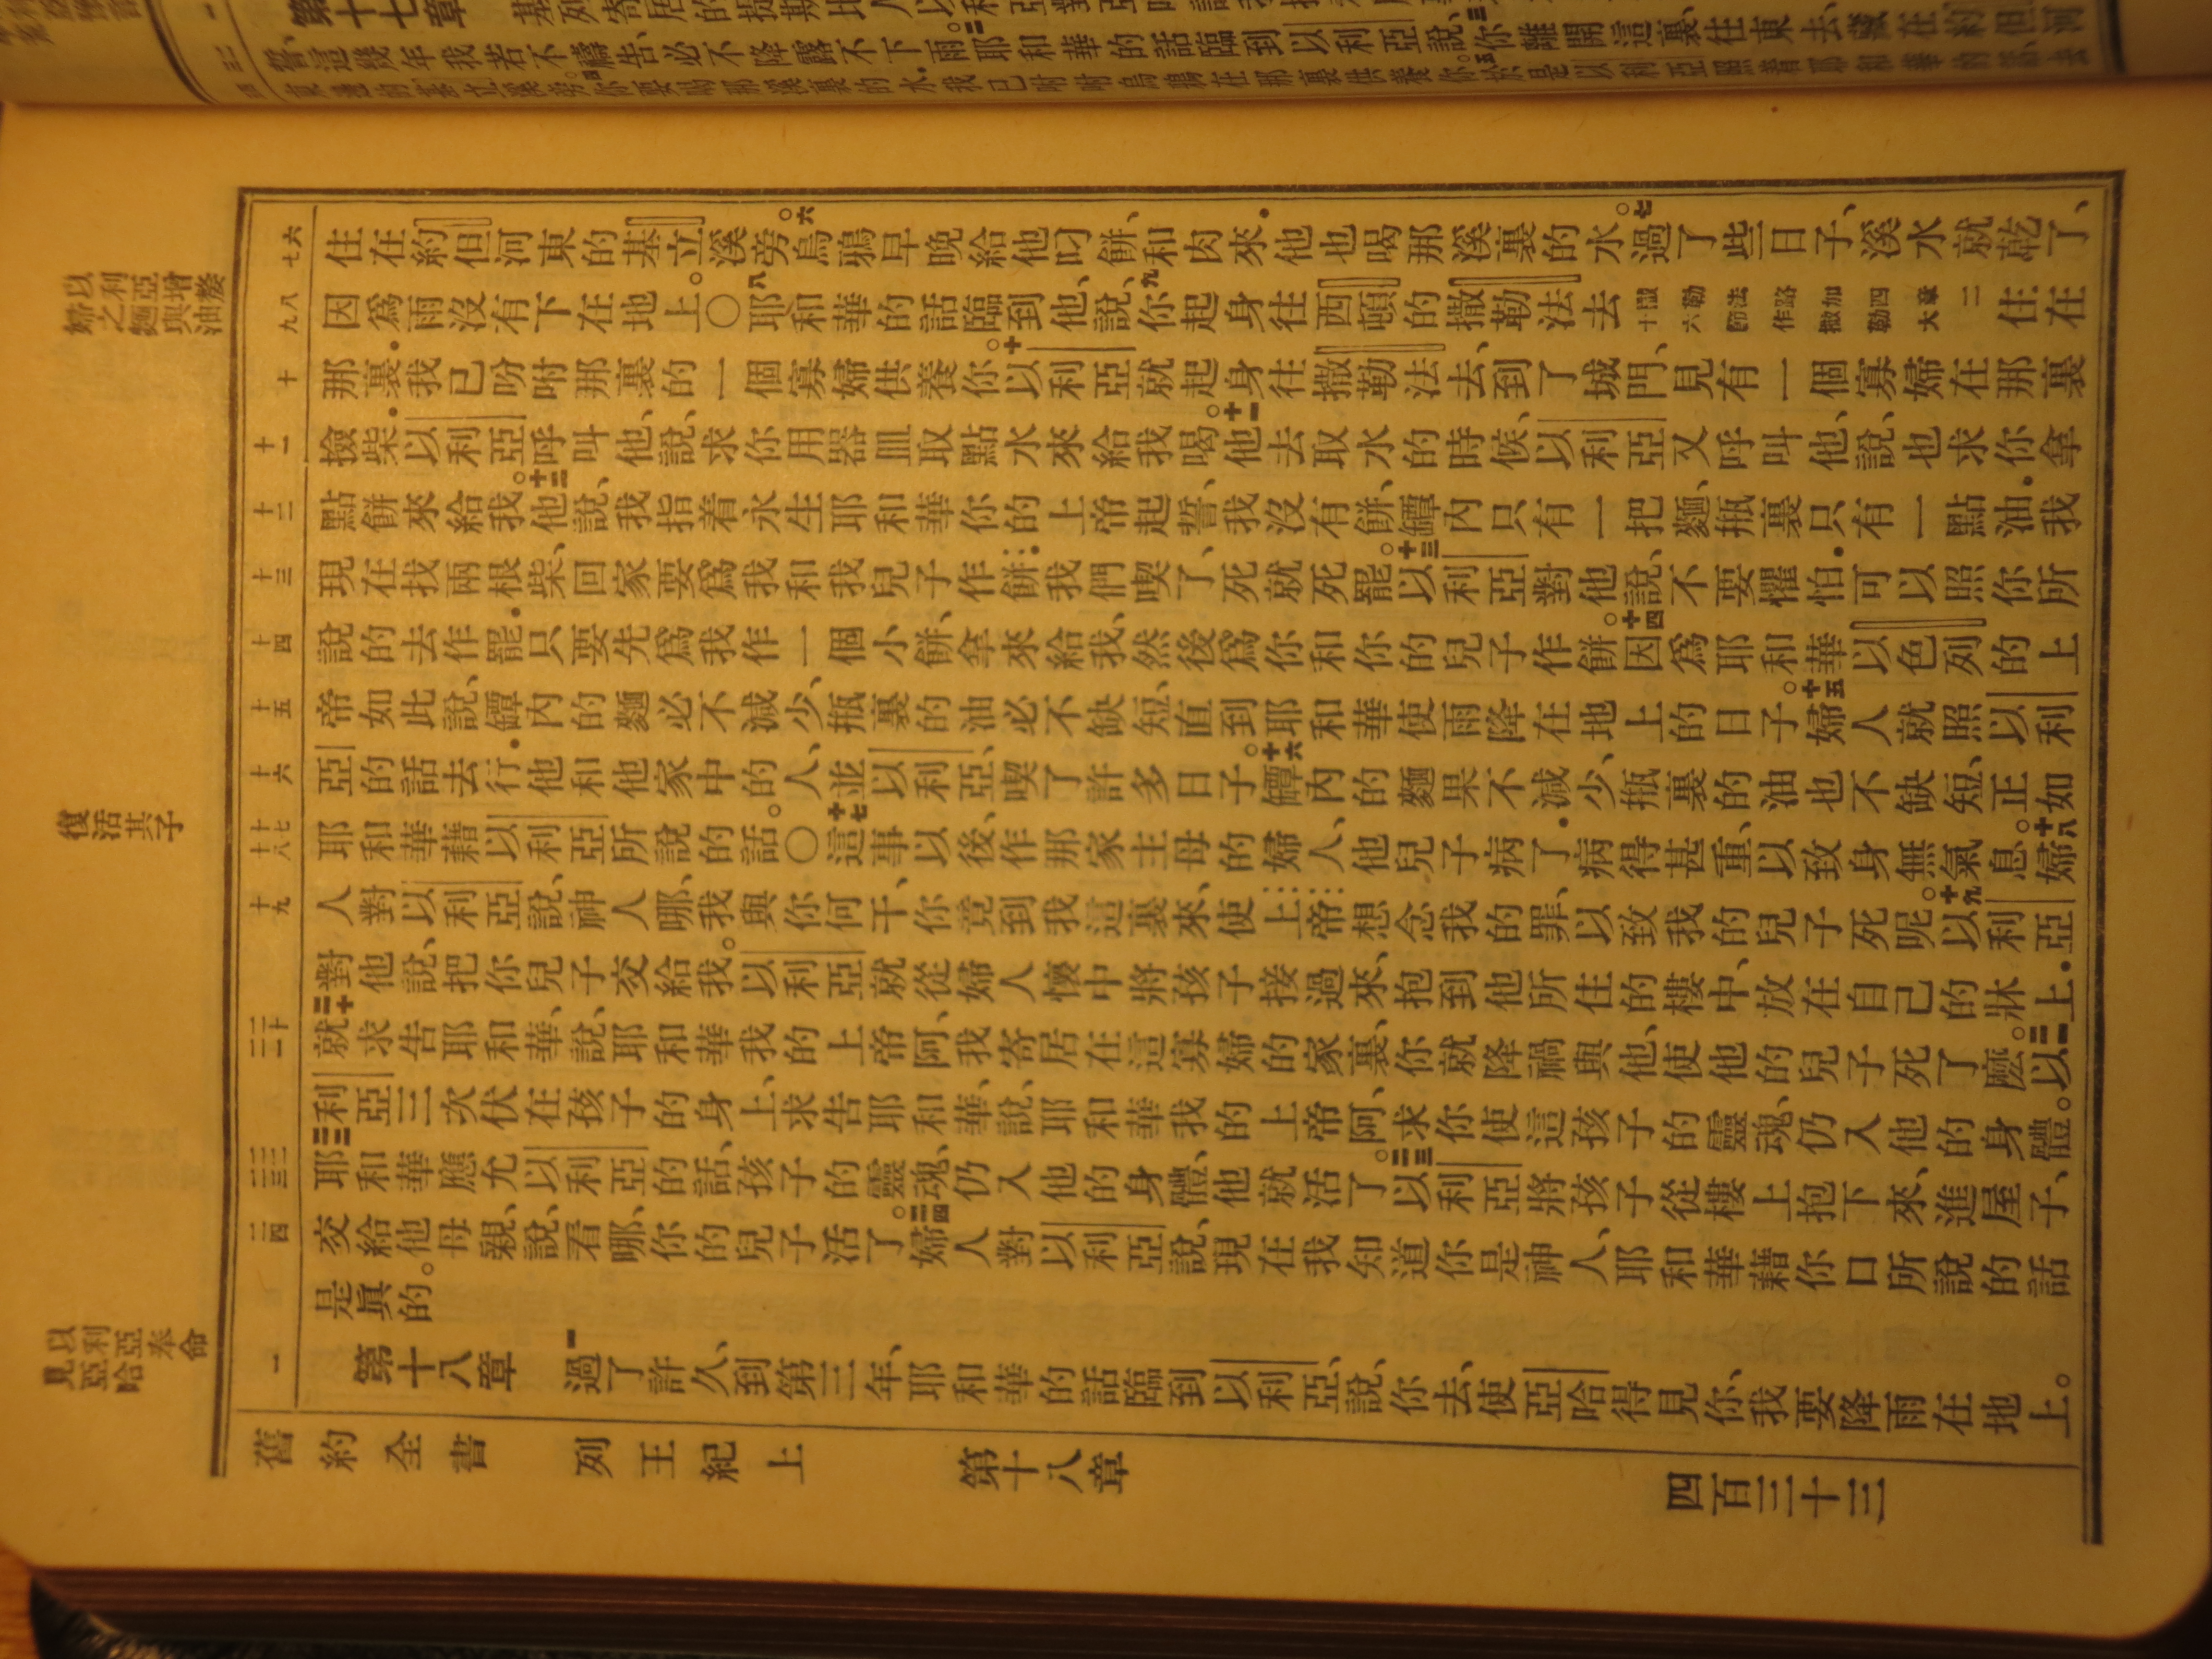 住在約但河東的基立溪旁。六烏鴉早晚給他叼餅、和肉來．他也喝那溪裏的水。七過了些日子、溪水就乾了、
因爲雨沒有下在地上。〇八耶和華的話臨到他、說、九你起身往西頓的撒勒法去住在
那裏．我已吩咐那裏的一個寡婦供養你。十以利亞就起身往撒勒法去、到了城門、見有一個寡婦在那裏
撿柴．以利亞呼叫他、說、求你用器皿取點水來給我喝。十一他去取水的時候、以利亞又呼叫他、說、也求你拿
點餅來給我。十二他說、我指着永生耶和華你的上帝起誓、我沒有餅、罈內只有一把麵、瓶裏只有一點油．我
現在找兩根柴、回家要爲我和我兒子作餅．我們喫了、死就死罷。十三以利亞對他說、不要懼怕．可以照你所
說的去作罷．只要先爲我作一個小餅、拿來給我、然後爲你和你的兒子作餅。十四因爲耶和華以色列的上
帝如此說、罈內的麵必不減少、瓶裏的油必不缺短、直到耶和華使雨降在地上的日子。十五婦人就照以利
亞的話去行．他和他家中的人、並以利亞、喫了許多日子。十六罈內的麵果不減少、瓶裏的油也不缺短、正如
耶和華藉以利亞所說的話。〇十七這事以後、作那家主母的婦人、他兒子病了．病得甚重、以致身無氣息。十八婦
人對以利亞說、神人哪、我與你何干、你竟到我這裏來、使上帝想念我的罪、以致我的兒子死呢。十九以利亞
對他說、把你兒子交給我。以利亞就從婦人懷中將孩子接過來、抱到他所住的樓中、放在自己的牀上．
二十就求告耶和華、說、耶和華我的上帝阿、我寄居在這寡婦的家裏、你就降禍與他、使他的兒子死了麽。二一以
利亞三次伏在孩子的身上、求告耶和華、說、耶和華我的上帝阿、求你使這孩子的靈魂、仍入他的身體。
二二耶和華應允以利亞的話、孩子的靈魂、仍入他的身體、他就活了。二三以利亞將孩子從樓上抱下來、進屋子、
交給他母親、說、看哪、你的兒子活了。二四婦人對以利亞說、現在我知道你是神人、耶和華藉你口所說的話
是眞的。
第十八章 一過了許久、到第三年、耶和華的話臨到以利亞、說、你去、使亞哈得見你、我要降雨在地上。
舊約全書 列王紀上 第十八章 四百三十三
以利亞增
與麵油
之嫠婦
復活其子
以利亞奉命
見亞哈